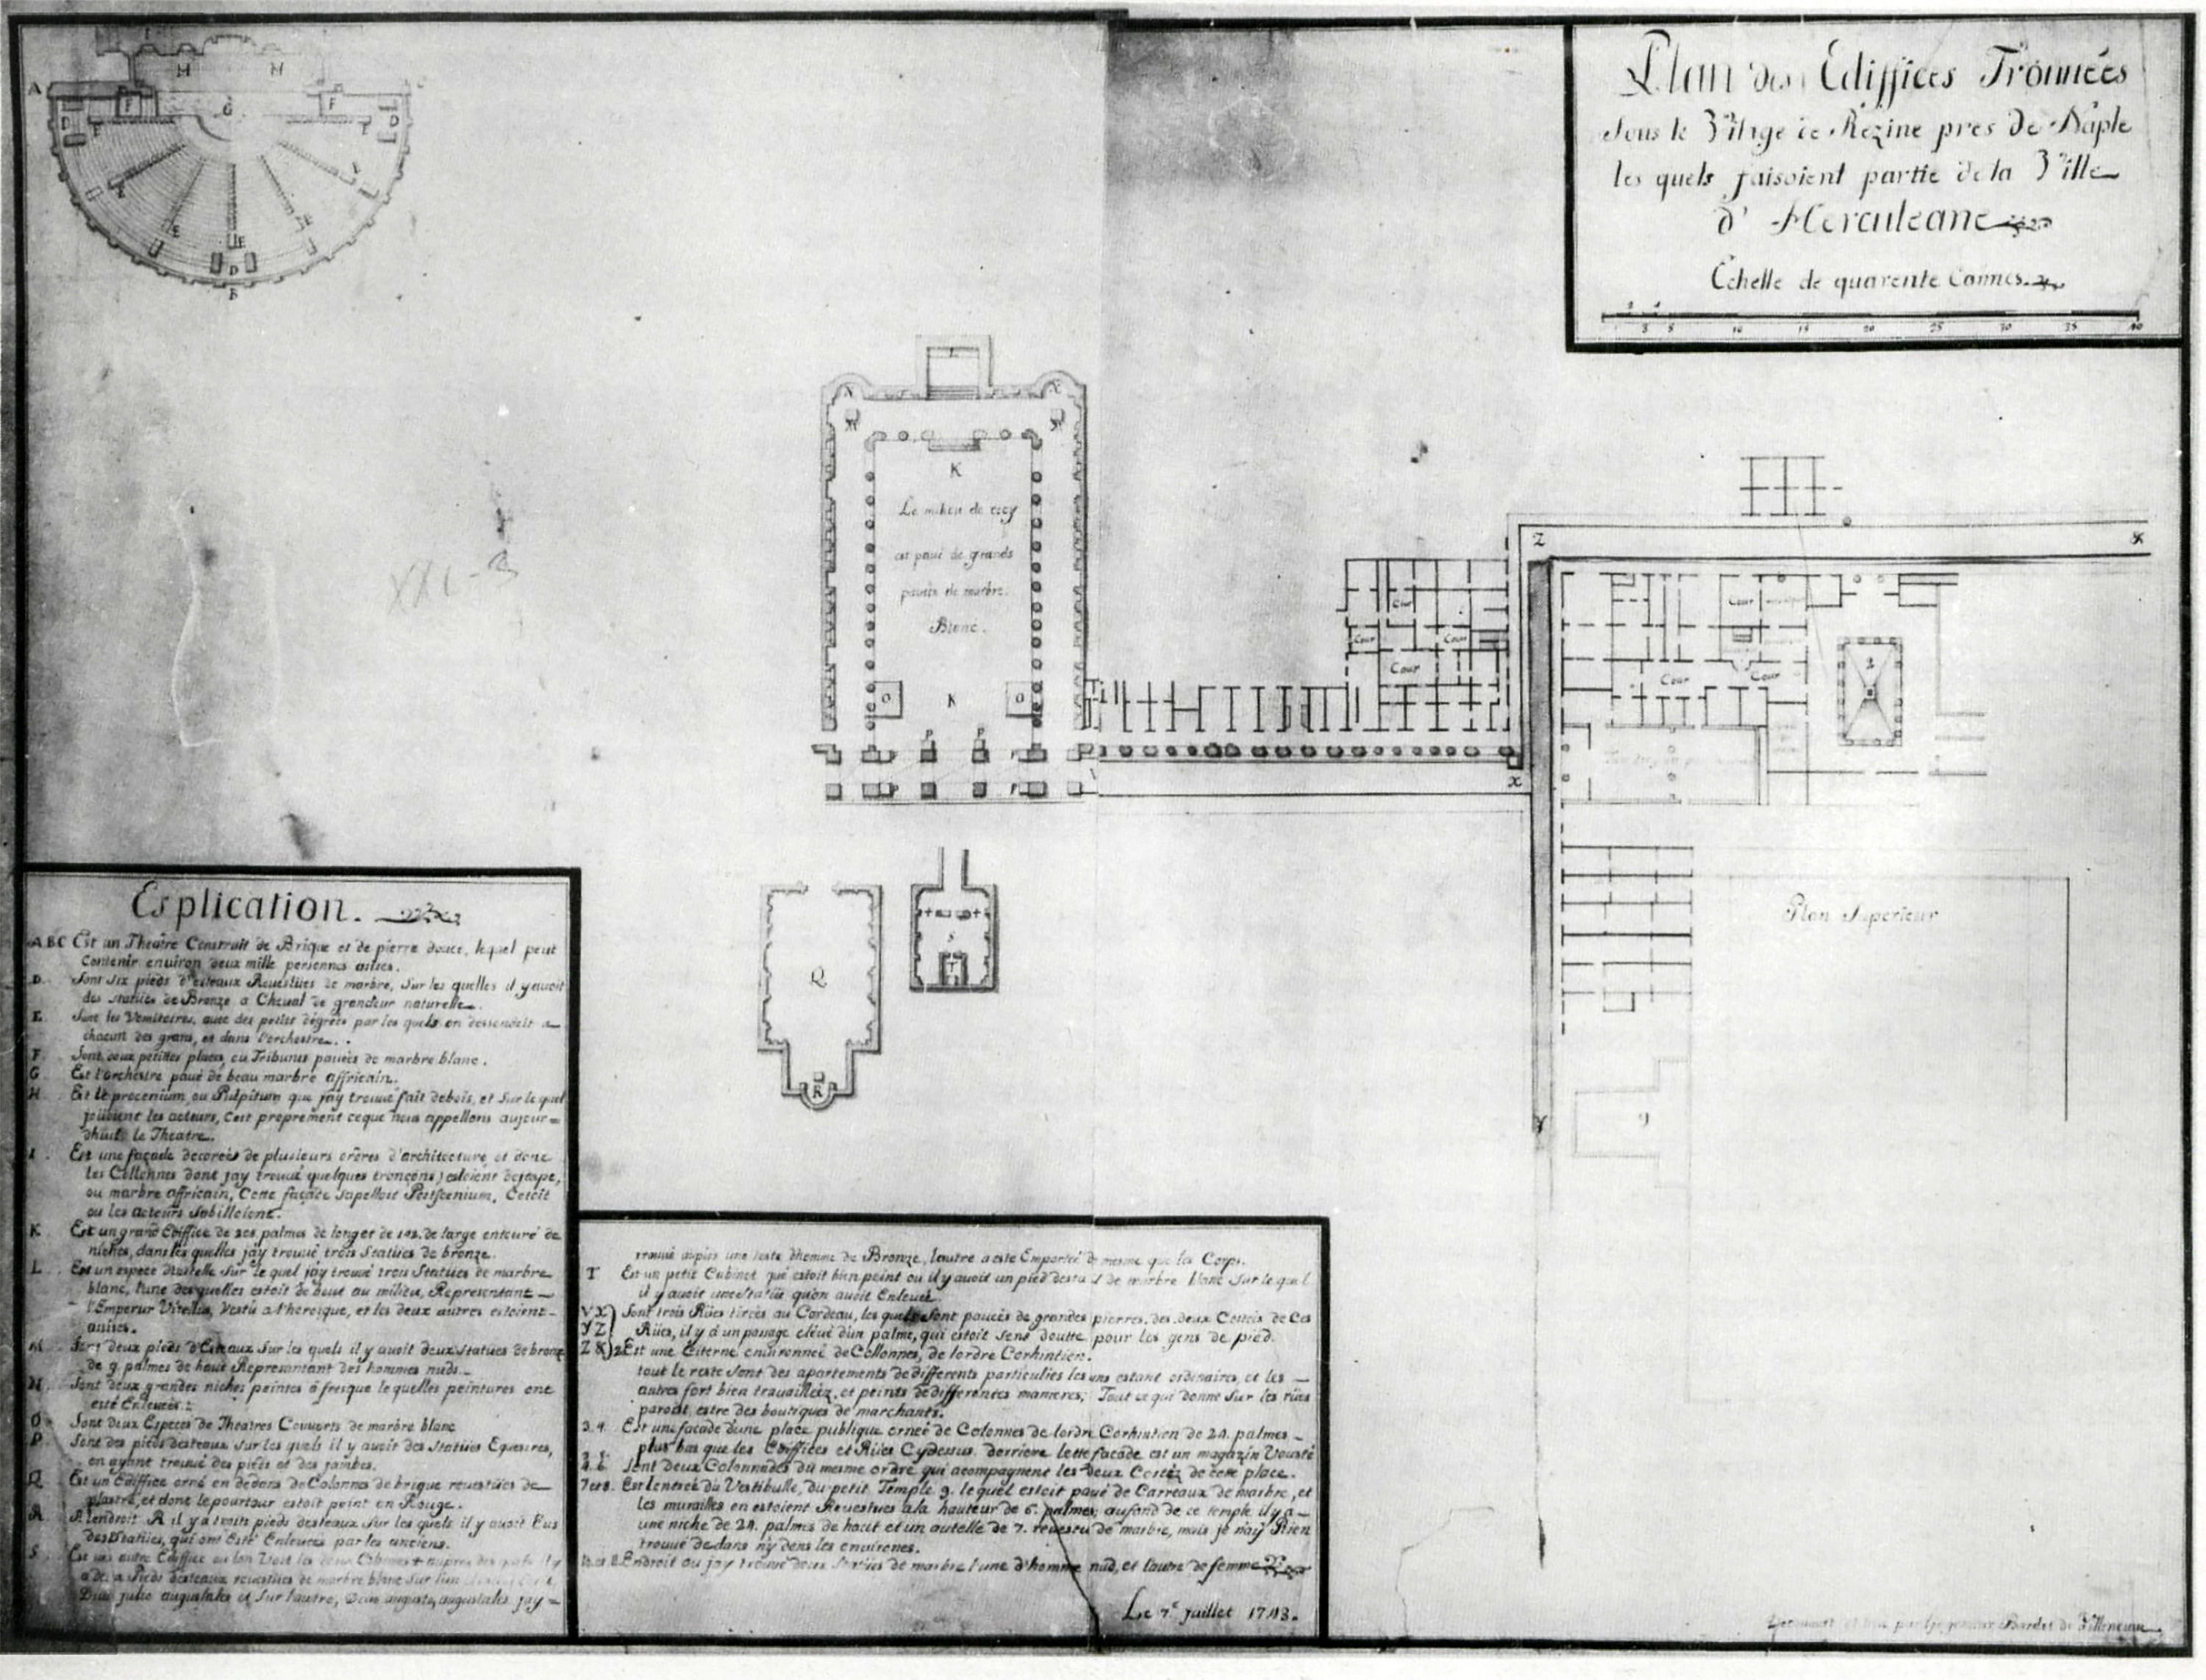 Plan des Ediffices Trouuées
Sous le Vilage de Rezine pres de Naple
les quels faisoient partie de la Ville
d' Herculeane
Echelle de quarente Cannes.
10 15 20 25 30 35 40
A
H H
F G F
D E E D
E E
E E E
D
B
L
N N
M M
K
Le milieu de
est paué de grands
de marbre
Blanc.
O K O
P P
Z &
Cour Cour
Cour Cour 2
Cour
Cour Cour
X
Q S
T
R
Plan Superieur
9
Y
XXI-3
Esplication.
ABC Est un Theatre Construit de Brique et de pierre douce, lequel peut
Contenir enuiron deux mille personnes assises.
D. Sont six pieds d'esteaux Reuestües de marbre, sur les quelles il y auoit
des statües de Bronze a Cheual de grandeur naturelle.
E. Sont les Vomitoires, auec des petits degrées par les quels on dessendoit a
chacun des grans, et dans l'orchestre.
F. Sont deux petittes places, ou Tribunes pauées de marbre blanc.
G Est l'orchestre paué de beau marbre affricain.
H Est le procenium, ou Pulpitum que jay trouué fait de bois, et sur le quel
joüoient les acteurs, C'est proprement ce que nous appellons aujour=
dhuit le Theatre.
I. Est une façade decorées de plusieurs ordres d'architecture, et donc
les Collonnes dont jay trouué quelques tronçons estoient
ou marbre affricain, Cette façade sapelloit Postscenium, Cetoit
ou les acteurs sabilloient.
K Est un grand Ediffice de palmes de long et de de large entouré de
niches, dans les quelles jay trouué trois Statües de bronze.
L. Est un espece sur le quel jay trouué trois Statües de marbre
blanc, l'une desquelles estoit de bout au milieu, Representant
l'Emperur Vitellus, Vestu a l'heroique, et les deux autres estoient
assises.
M Sont deux pieds d'Esteaux sur les quels il y auoit deux Statües de bronze
de 9. palmes de haut Representant des hommes nuds.
N Sont deux grandes niches peintes à fresque le quelles peintures ont
esté Enleuées.
O Sont deux Especes de Theatres Couuerts de marbre blanc
P. Sont des pieds desteaux sur les quels il y auoit des Statües Equestres,
en ayant trouué des pieds et des jambes.
Q Est un Ediffice orné en dedans de Colonnes de brique reuestües de
plastre, et dont le pourtour estoit peint en Rouge.
R A lendroit R il y a trois pieds desteaux sur les quels il y auoit Eus
des Statües, qui ont Esté Enleuées par les anciens.
S. Est un autre Ediffice ou lon Voit les deux
a de pieds desteaux reuestües de marbre blanc sur l'un
Diuo julio augustales et sur l'autre, Diuo augusto, augustales jay
trouué aupies une teste d'homme de Bronze, l'autre a esté Emportéé de mesme que les Corps.
T Est un petit Cabinet qui estoit bien peint ou il y auoit un pied destal de marbre blanc sur le quel
il y auoit une Statüe qu'on auoit Enleuée.
VX Sont trois Rües tirées au Cordeau, les quels sont pauées de grandes pierres, des deux Costés de Ces
YZ Rües, il y a un passage eléué d'un palme, qui estoit sens doutte pour les gens de pied.
Z & 2 Est une Citerne enuironneé de Collonnes, de lordre Corhintien.
tout le reste sont des apartements de differents particuliés les uns estant ordinaires, et les
autres fort bien trauailléez, et peints de differentes manieres; Tout ce qui donne sur les rües
paroit estre des boutiques de marchants.
3. 4 Est une façade d'une place publique orneé de Colonnes de lordre Corhintien de 24. palmes
plus bas que les Ediffices et Rües Cydessus. derriere lette facade est un magazin Vousté
Sont deux Colonnades du mesme ordre qui acompagnent les deux Costéz de cette place.
7 et 8. Est lentreé du Vestibulle, du petit Temple 9. lequel estoit paué de Carreaux de marbre, et
les murailles en estoient Reuestues a la hauteur de 6. palmes; au fond de ce temple il y a
une niche de 24. palmes de haut et un autelle de 7. reuestu de marbre, mais je n'ay Rien
trouué de dans ny dens les enuirones.
Endroit ou jay trouué deux Statües de marbre l'une d'homme nud, et l'autre de femme
Le 7e juillet 1743.
par Bardet de Villeneuue